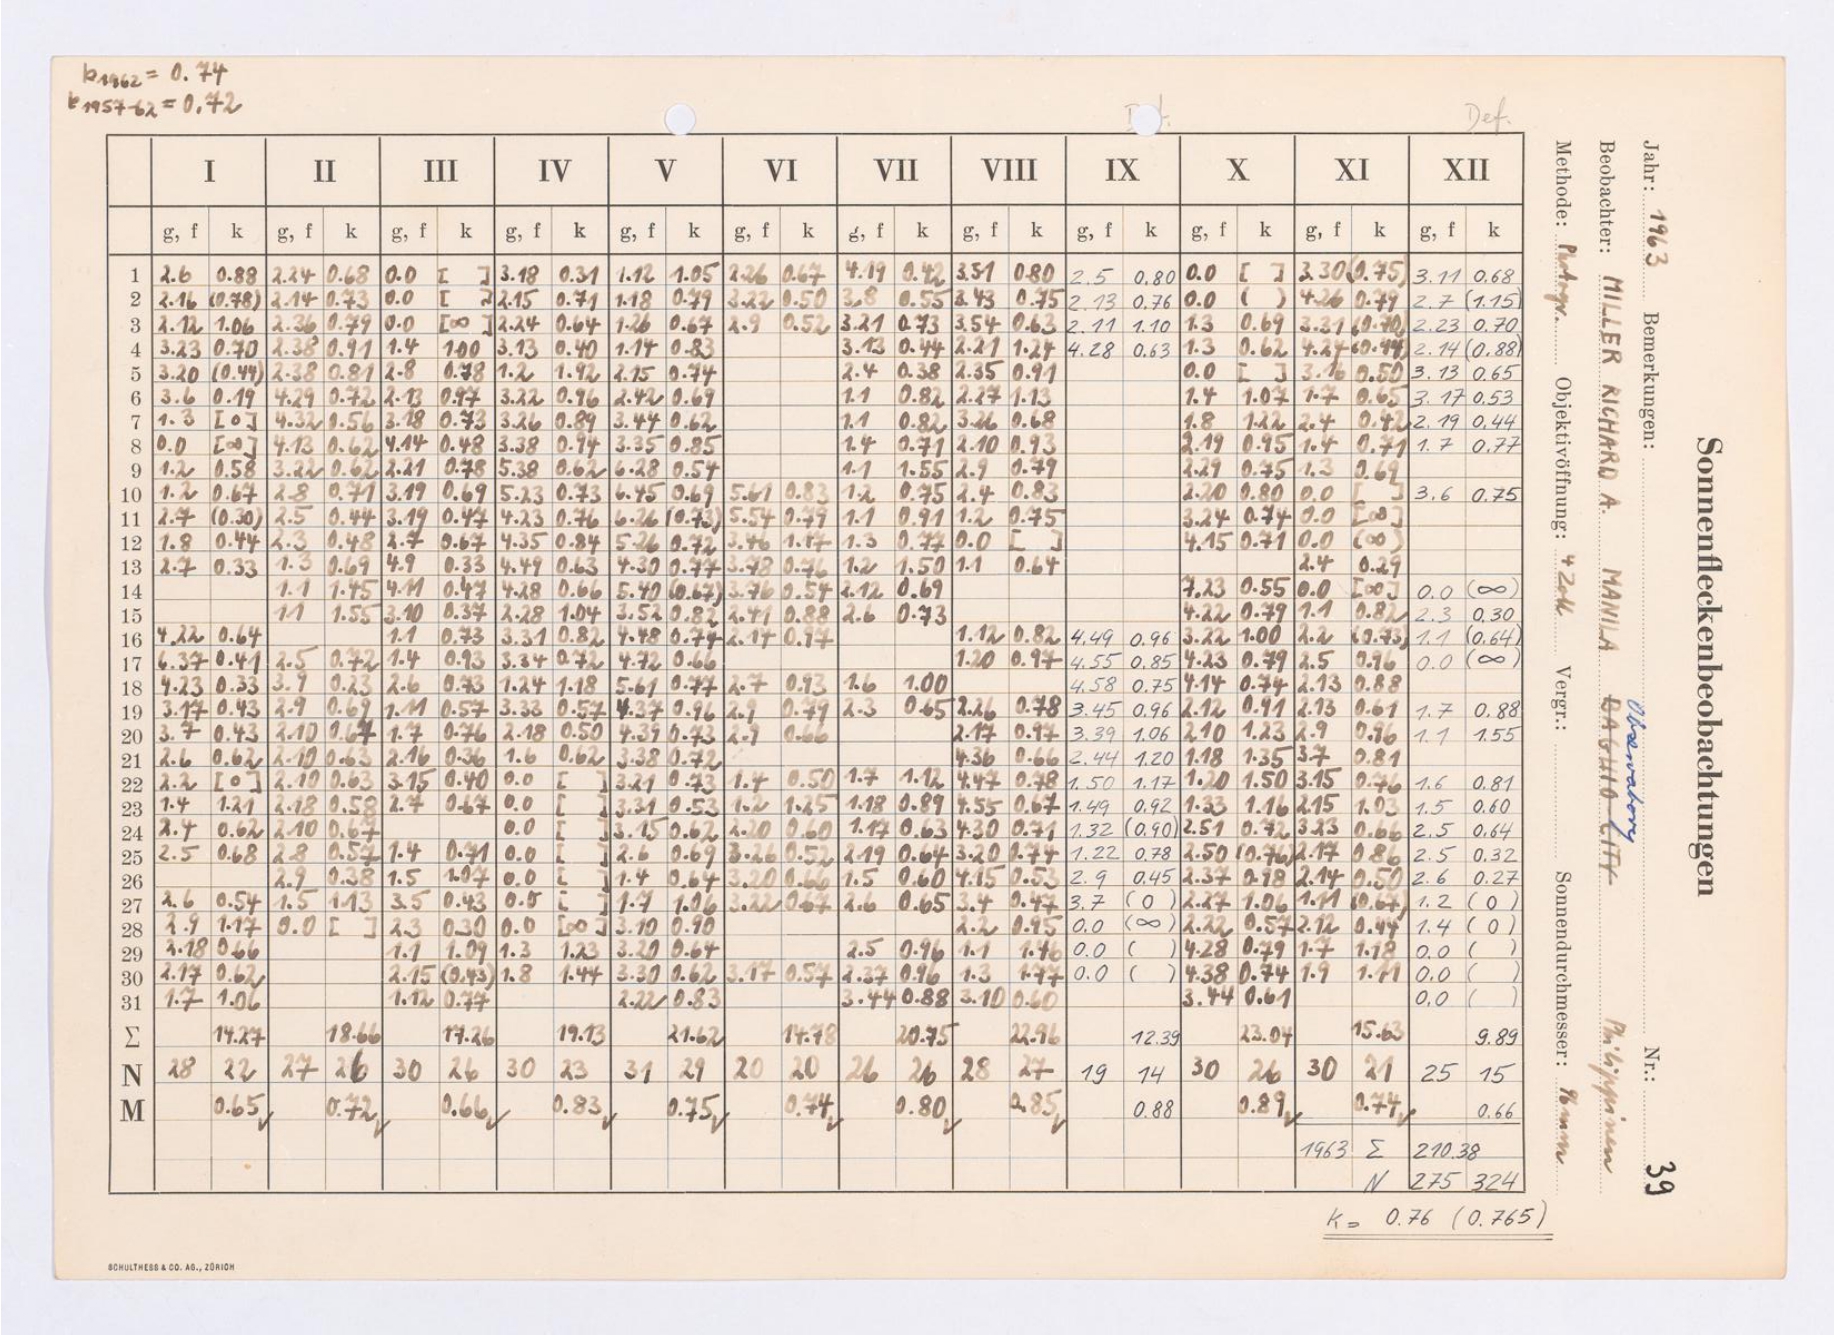 k 1962 = 0.74
k 1957-62 = 0.72
Def.
I II III IV V VI VII VIII IX X XI XII
g, f k g, f k g, f k g, f k g, f k g, f k g, f k g, f k g, f k g, f k g, f k g, f k
1 2.6 0.88 2.24 0.68 0.0 [ ] 3.18 0.31 1.12 1.05 2.26 0.67 4.19 0.42 3.51 0.80 2.5 0.80 0.0 [ ] 3.30 (0.75) 3.11 0.68
2 2.16 (0.78) 2.14 0.73 0.0 [ ] 2.15 0.71 1.18 0.79 3.22 0.50 3.8 0.55 3.43 0.75 2.13 0.76 0.0 ( ) 4.26 0.79 2.7 (1.15)
3 2.12 1.06 2.36 0.79 0.0 [∞] 2.24 0.64 1.26 0.67 2.9 0.52 3.21 0.73 3.54 0.63 2.11 1.10 1.3 0.69 3.31 (0.70) 2.23 0.70
4 3.23 0.70 2.38 0.91 1.4 1.00 3.13 0.40 1.14 0.83 3.13 0.44 2.21 1.24 4.28 0.63 1.3 0.62 4.24 (0.44) 2.14 (0.88)
5 3.20 (0.44) 2.38 0.81 2.8 0.78 1.2 1.92 2.15 0.74 2.4 0.38 2.35 0.91 0.0 [ ] 3.16 0.50 3.13 0.65
6 3.6 0.19 4.29 0.72 2.13 0.97 3.22 0.96 2.42 0.69 1.1 0.82 2.27 1.13 1.4 1.07 1.7 0.65 3.17 0.53
7 1.3 [0] 4.32 0.56 3.18 0.73 3.26 0.89 3.44 0.62 1.1 0.82 3.26 0.68 1.8 1.22 2.4 0.42 2.19 0.44
8 0.0 [∞] 4.13 0.62 4.14 0.48 3.38 0.94 3.35 0.85 1.4 0.71 2.10 0.93 2.19 0.95 1.4 0.71 1.7 0.77
9 1.2 0.58 3.22 0.62 2.21 0.78 5.38 0.62 6.28 0.54 1.1 1.55 2.9 0.79 2.29 0.75 1.3 0.69
10 1.2 0.67 2.8 0.71 3.19 0.69 5.23 0.73 6.45 0.69 5.61 0.83 1.2 0.75 2.4 0.83 2.20 0.80 0.0 [ ] 3.6 0.75
11 2.7 (0.30) 2.5 0.44 3.19 0.47 4.23 0.76 6.26 (0.73) 5.54 0.79 1.1 0.91 1.2 0.75 3.24 0.74 0.0 [∞]
12 1.8 0.44 2.3 0.48 2.7 0.67 4.35 0.84 5.26 0.72 3.46 1.17 1.3 0.77 0.0 [ ] 4.15 0.71 0.0 (∞)
13 2.7 0.33 1.3 0.69 4.9 0.33 4.49 0.63 4.30 0.77 3.78 0.76 1.2 1.50 1.1 0.64 2.4 0.29
14 1.1 1.45 4.11 0.47 4.28 0.66 5.40 (0.67) 3.76 0.54 2.12 0.69 7.23 0.55 0.0 [∞] 0.0 (∞)
15 1.1 1.55 3.10 0.37 2.28 1.04 3.52 0.82 2.41 0.88 2.6 0.73 4.22 0.79 1.1 0.82 2.3 0.30
16 4.22 0.64 1.1 0.73 3.31 0.82 4.48 0.74 2.14 0.97 1.12 0.82 4.49 0.96 3.22 1.00 2.2 (0.73) 1.1 (0.64)
17 6.37 0.41 2.5 0.72 1.4 0.93 3.34 0.72 4.72 0.66 1.20 0.97 4.55 0.85 4.23 0.79 2.5 0.96 0.0 (∞)
18 4.23 0.33 3.9 0.23 2.6 0.73 1.24 1.18 5.61 0.77 2.7 0.93 1.6 1.00 4.58 0.75 4.14 0.74 2.13 0.88
19 3.17 0.43 2.9 0.69 1.11 0.57 3.33 0.57 4.37 0.96 2.9 0.79 2.3 0.65 2.26 0.78 3.45 0.96 2.12 0.91 2.13 0.61 1.7 0.88
20 3.7 0.43 2.10 0.67 1.7 0.76 2.18 0.50 4.39 0.73 2.9 0.66 2.17 0.97 3.39 1.06 2.10 1.23 2.9 0.96 1.1 1.55
21 2.6 0.62 2.10 0.63 2.16 0.36 1.6 0.62 3.38 0.72 4.36 0.66 2.44 1.20 1.18 1.35 3.7 0.81
22 2.2 [0] 2.10 0.63 3.15 0.40 0.0 [ ] 3.21 0.73 1.4 0.50 1.7 1.12 4.47 0.78 1.50 1.17 1.20 1.50 3.15 0.76 1.6 0.81
23 1.4 1.21 2.18 0.58 2.7 0.67 0.0 [ ] 3.31 0.53 1.2 1.25 1.18 0.89 4.55 0.67 1.49 0.92 1.33 1.16 2.15 1.03 1.5 0.60
24 2.4 0.62 2.10 0.67 0.0 [ ] 3.15 0.62 2.20 0.60 1.17 0.63 4.30 0.71 1.32 (0.90) 2.51 0.72 3.23 0.66 2.5 0.64
25 2.5 0.68 2.8 0.57 1.4 0.71 0.0 [ ] 2.6 0.69 3.26 0.52 2.19 0.64 3.20 0.74 1.22 0.78 2.50 (0.76) 2.17 0.86 2.5 0.32
26 2.9 0.38 1.5 1.07 0.0 [ ] 1.4 0.64 3.20 0.66 1.5 0.60 4.15 0.53 2.9 0.45 2.37 0.98 2.14 0.50 2.6 0.27
27 2.6 0.54 1.5 1.13 3.5 0.43 0.0 [ ] 1.7 1.06 3.22 0.67 2.6 0.65 3.4 0.47 3.7 (0) 2.27 1.06 1.11 (0.67) 1.2 (0)
28 2.9 1.17 0.0 [ ] 2.3 0.30 0.0 [∞] 3.10 0.90 2.2 0.95 0.0 (∞) 2.22 0.57 2.12 0.44 1.4 (0)
29 2.18 0.66 1.1 1.09 1.3 1.23 3.20 0.64 2.5 0.96 1.1 1.46 0.0 ( ) 4.28 0.79 1.7 1.18 0.0 ( )
30 2.17 0.62 2.15 (0.43) 1.8 1.44 3.30 0.62 3.17 0.57 2.37 0.96 1.3 1.77 0.0 ( ) 4.38 0.74 1.9 1.11 0.0 ( )
31 1.7 1.06 1.12 0.77 2.22 0.83 3.44 0.88 3.10 0.60 3.44 0.61 0.0 ( )
Σ 14.27 18.66 17.26 19.13 21.62 14.78 20.75 22.96 12.39 23.04 15.63 9.89
N 28 22 27 26 30 26 30 23 31 29 20 20 26 26 28 27 19 14 30 26 30 21 25 15
M 0.65 0.72 0.66 0.83 0.75 0.74 0.80 0.85 0.88 0.89 0.74 0.66
1963 Σ 210.38
N 275 324
k = 0.76 (0.765)
SCHULTHESS & CO. AG., ZÜRICH
Sonnenfleckenbeobachtungen
Jahr: 1963 Bemerkungen: Nr.: 39
Beobachter: MILLER RICHARD A. MANILA BAGUIO CITY Observatory Philippinen
Methode: Objektivöffnung: 4 Zoll Vergr.: Sonnendurchmesser: 96mm